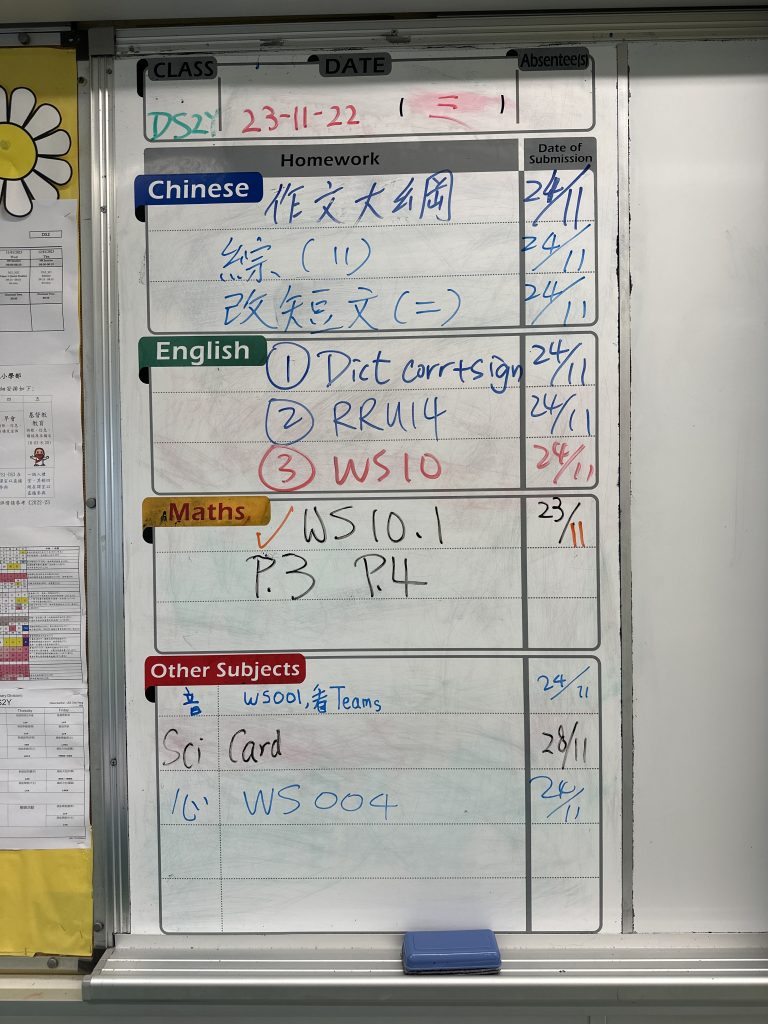 CLASS DATE Absentee(s)
DS2Y 23-11-22 ( 三 )
Homework Date of Submission
Chinese 作文大綱 24/11
綜(11) 24/11
改短文(二) 24/11
English ① Dict corr+sign 24/11
② RRU14 24/11
③ WS10 24/11
Maths ✓ WS 10.1 23/11
P.3 P.4
Other Subjects
音 WS001,看Teams 24/11
Sci Card 28/11
心 WS 004 24/11
DS2
小學部
四 五
早會 基督教教育
DS2Y
Thursday Friday